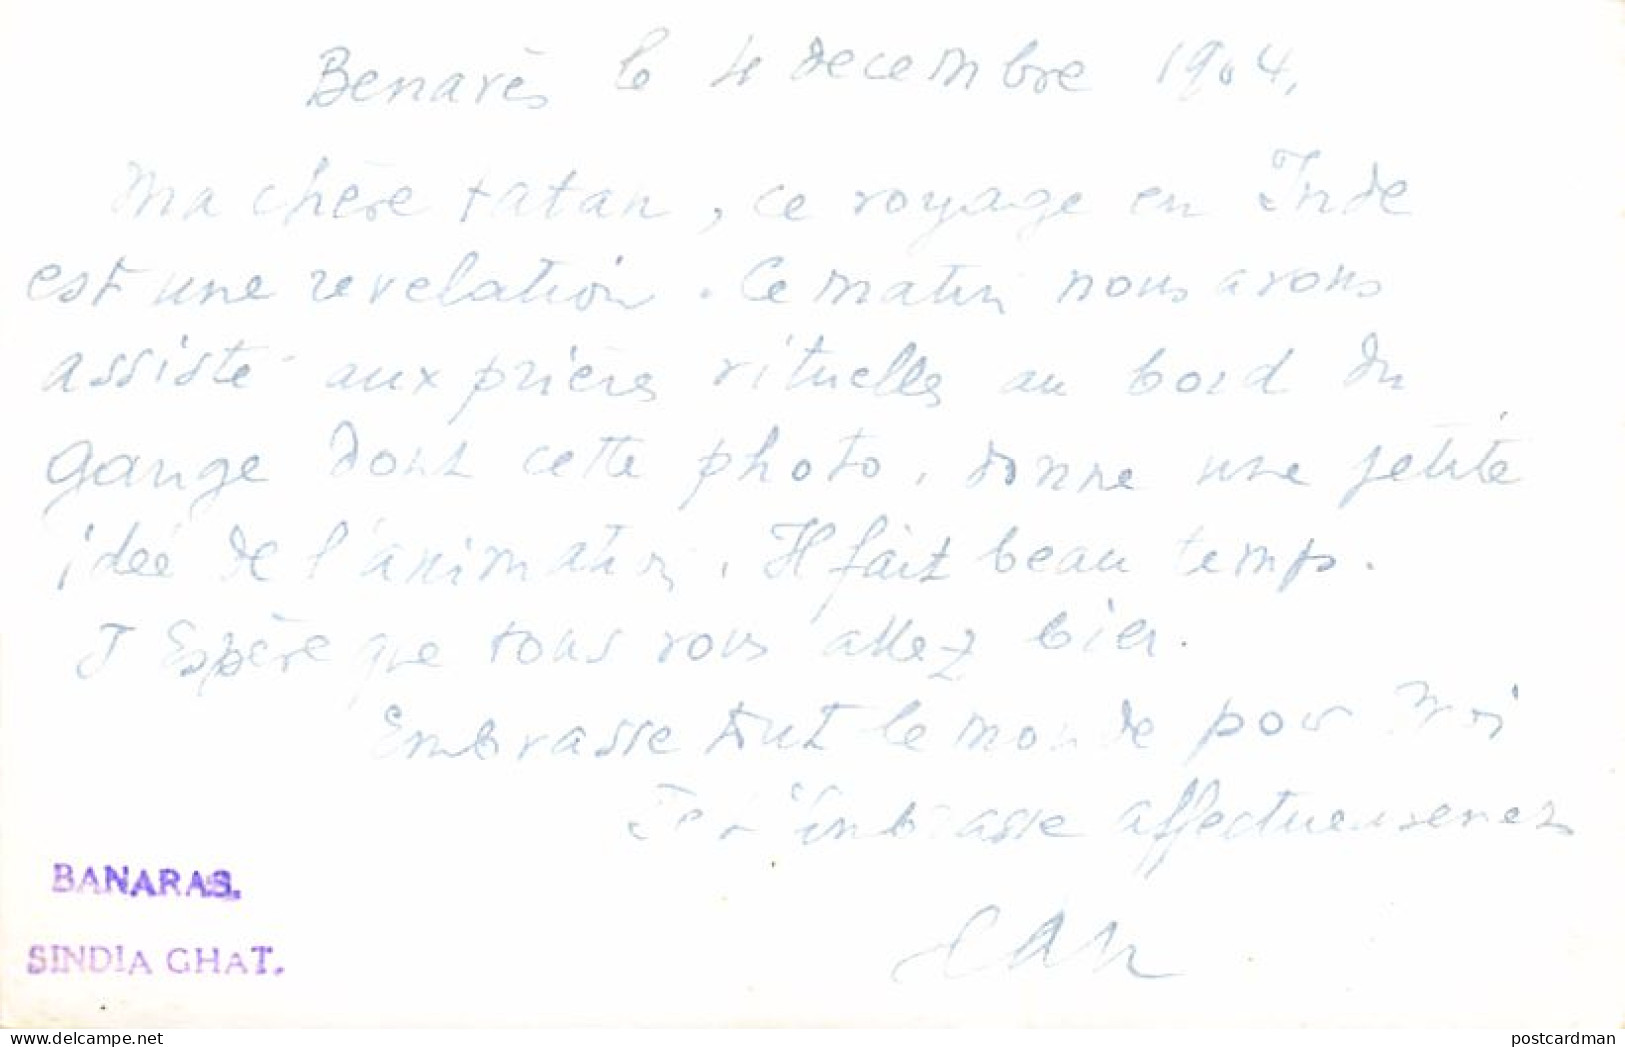 Benarès le 4 decembre 1904,
Ma chère tatan, ce voyage en Inde
est une revelation. Ce matin nous avons
assisté aux prières rituelles au bord du
Gange dont cette photo, donne une petite
idée de l'animation. Il fait beau temps.
J'Espère que tous vous allez bien.
Embrasse tout le monde pour moi
Je t'embrasse affectueusement
BANARAS.
SINDIA GHAT.
delcampe.net
postcardman